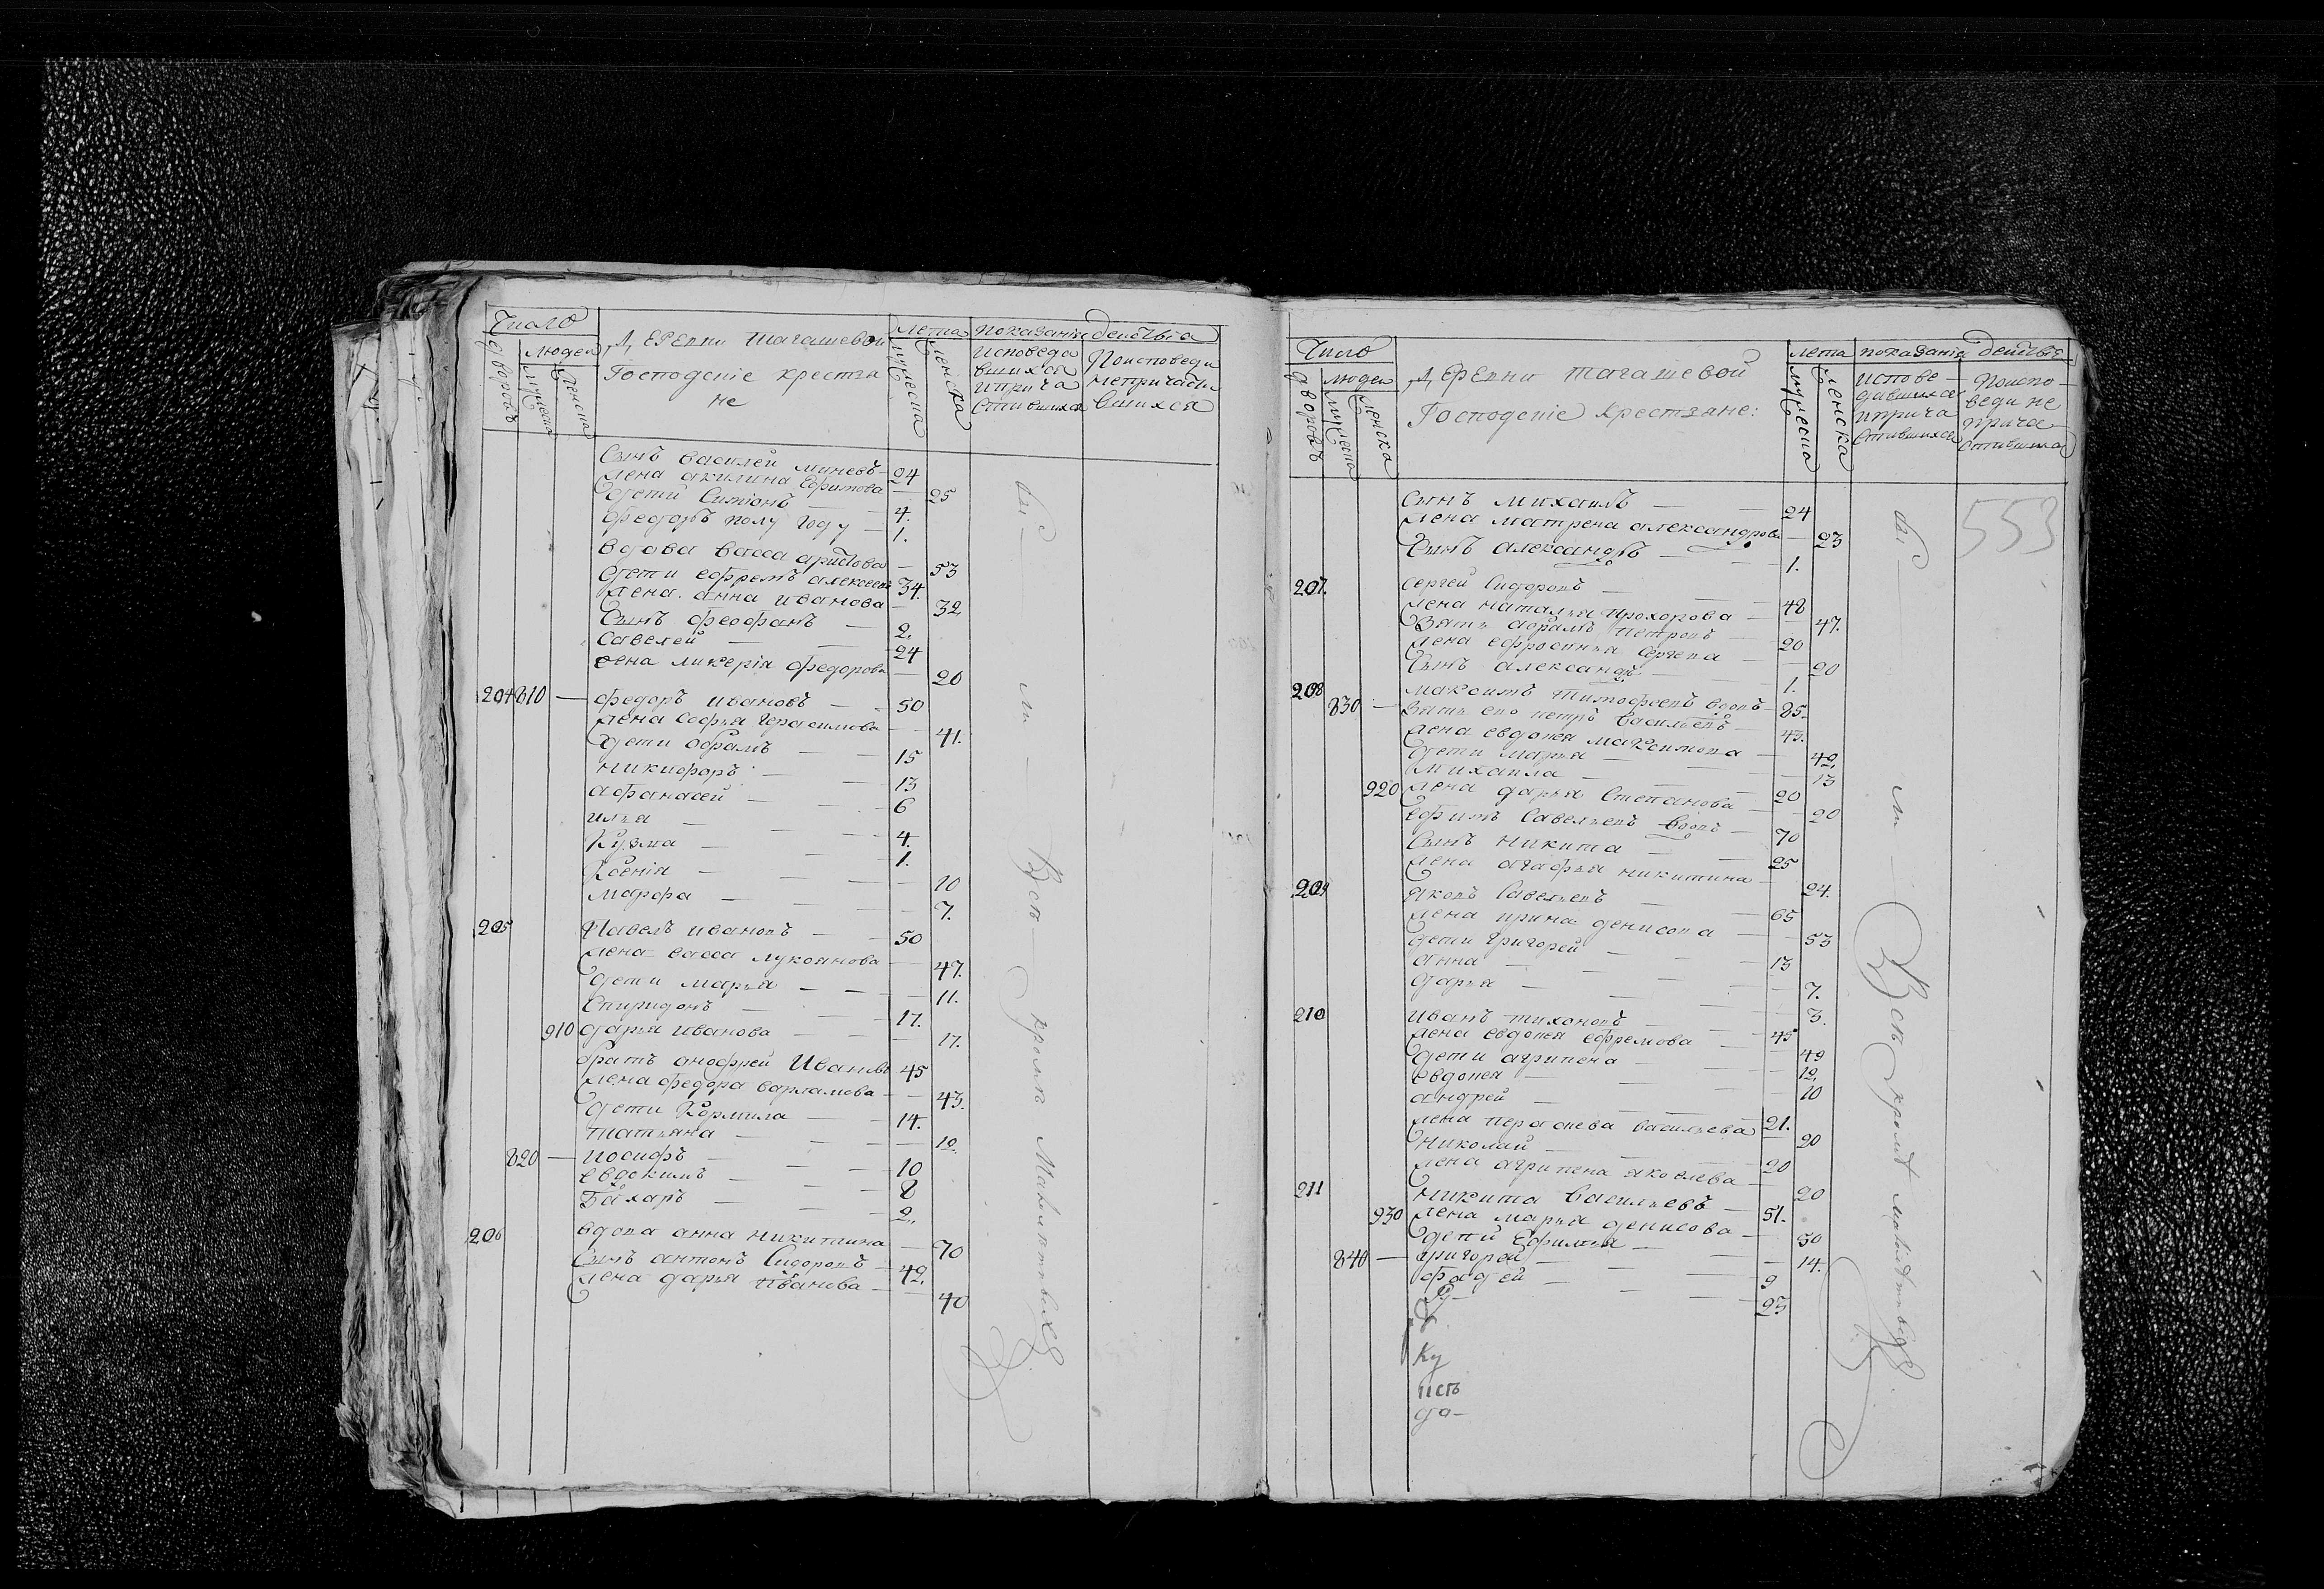 Число
Людей
дворовъ
мужеска
женска
Деревни тагашевой
Господскіе крестья
не
Лета
мужеска
женска
показаніи действа
исповеда
вшихся
и прича
стившихся
По исповеди
непричасти
вшихся
Сынъ василей минеевъ — 24
жена акилина ефимова — 25
дети Симіонъ — 4.
федоръ полу году — 1.
вдова васса аристова — 53
дети ефремъ алексеевъ 34.
жена анна иванова — 32
Сынъ феофанъ — 2.
Савелей — 24
жена ликерія федорова — 20
204 810 — федоръ ивановъ — 50
жена софья герасимова — 41.
дети абрамъ — 15
никифоръ — 13
афанасей — 6
илья — 4.
Кузма — 1.
Ксенія — 10
марфа — 7.
205 Павелъ ивановъ — 50
жена васса лукоянова — 47.
дети марья — 11.
Спиридонъ — 17.
910 дарья иванова — 17.
братъ анофрей Ивановъ 45
жена федора варламова — 43.
дети Кормила — 14.
татьяна — 12.
820 — иосифъ — 10
евдокимъ — 8
Захаръ — 2.
206 вдова анна никитина — 70
Сынъ антонъ Сидоровъ — 42.
жена дарья иванова — 40
бы — ли — Все — кроме Малолетныхъ
Число
Людей
дворовъ
мужеска
женска
Деревни тагашевой
Господскіе крестьяне:
лета
мужеска
женска
показаніи действа
испове—
давшихся
и прича
стившихся
По испо—
веди не
прича—
стившихся
553
Сынъ михаилъ — 24
жена матрена александрова — 23
Сынъ александръ — 1.
207. сергей Сидоровъ — 48
жена наталья прохорова — 47.
зять абрамъ петровъ — 20
жена ефросинья Сергеева — 20
Сынъ александръ — 1.
208 максимъ тимофеевъ вдовъ — 85.
830 — зять ево петръ васильевъ — 43.
жена евдокея максимова — 42.
дети марья — 13
михаила — 20
920 жена дарья Степанова — 20
ефимъ Савельевъ вдовъ — 70
Сынъ никита — 25
жена агафья никитина — 24.
209 яковъ Савельевъ — 65
жена ирина денисова — 53
дети григорей — 13
анна — 7.
дарья — 3.
210 иванъ тихоновъ — 45
жена евдокея ефремова — 42
дети агрипена — 12.
евдокея — 10
андрей — 21.
жена параскева васильева — 20
николай — 20
жена агрипена яковлева — 20
211 никита васильевъ — 51.
930 жена марья денисова — 50
дети ефимья — 14.
840 — григорей — 9
фадей — 23
Ку
исъ
да—
бы — ли — Все кроме малолетныхъ